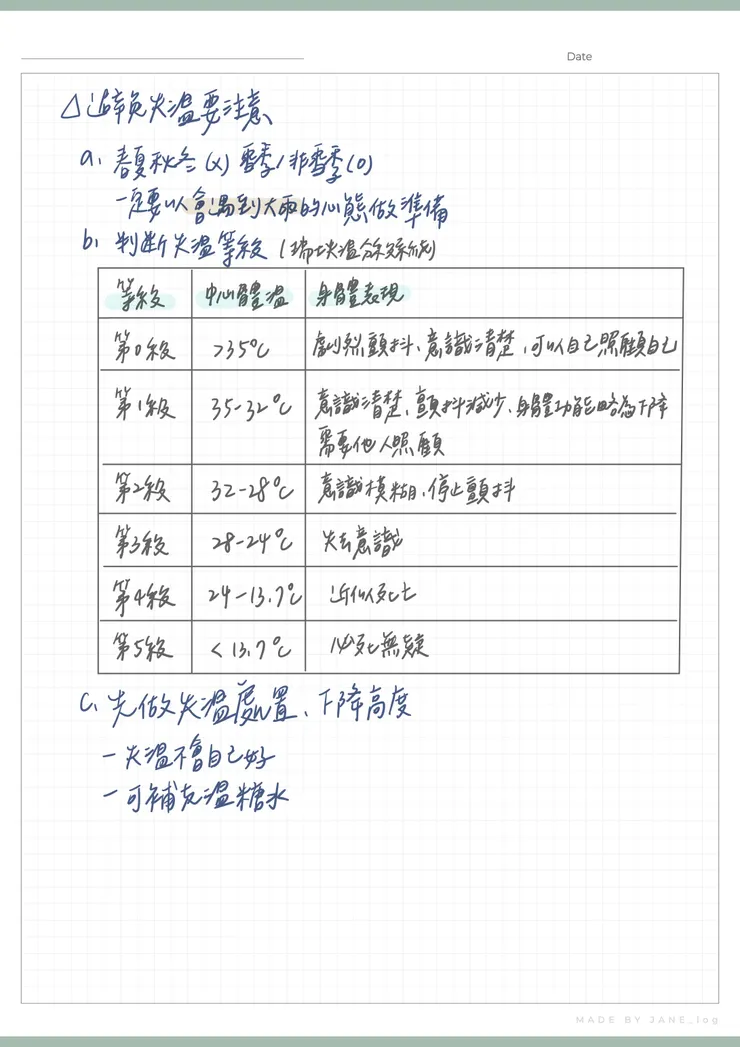 Date
△避免失溫要注意
a. 春夏秋冬(x) 雪季/非雪季(o)
一定要以會遇到大雨的心態做準備
b. 判斷失溫等級(瑞士失溫分級系統)
等級 中心體溫 身體表現
第0級 >35°C 劇烈顫抖、意識清楚,可以自己照顧自己
第1級 35-32°C 意識清楚、顫抖減少、身體功能略為下降
需要他人照顧
第2級 32-28°C 意識模糊、停止顫抖
第3級 28-24°C 失去意識
第4級 24-13.7°C 近似死亡
第5級 <13.7°C 必死無疑
c. 先做失溫處置、下降高度
-失溫不會自己好
-可補充溫糖水
MADE BY JANE_log